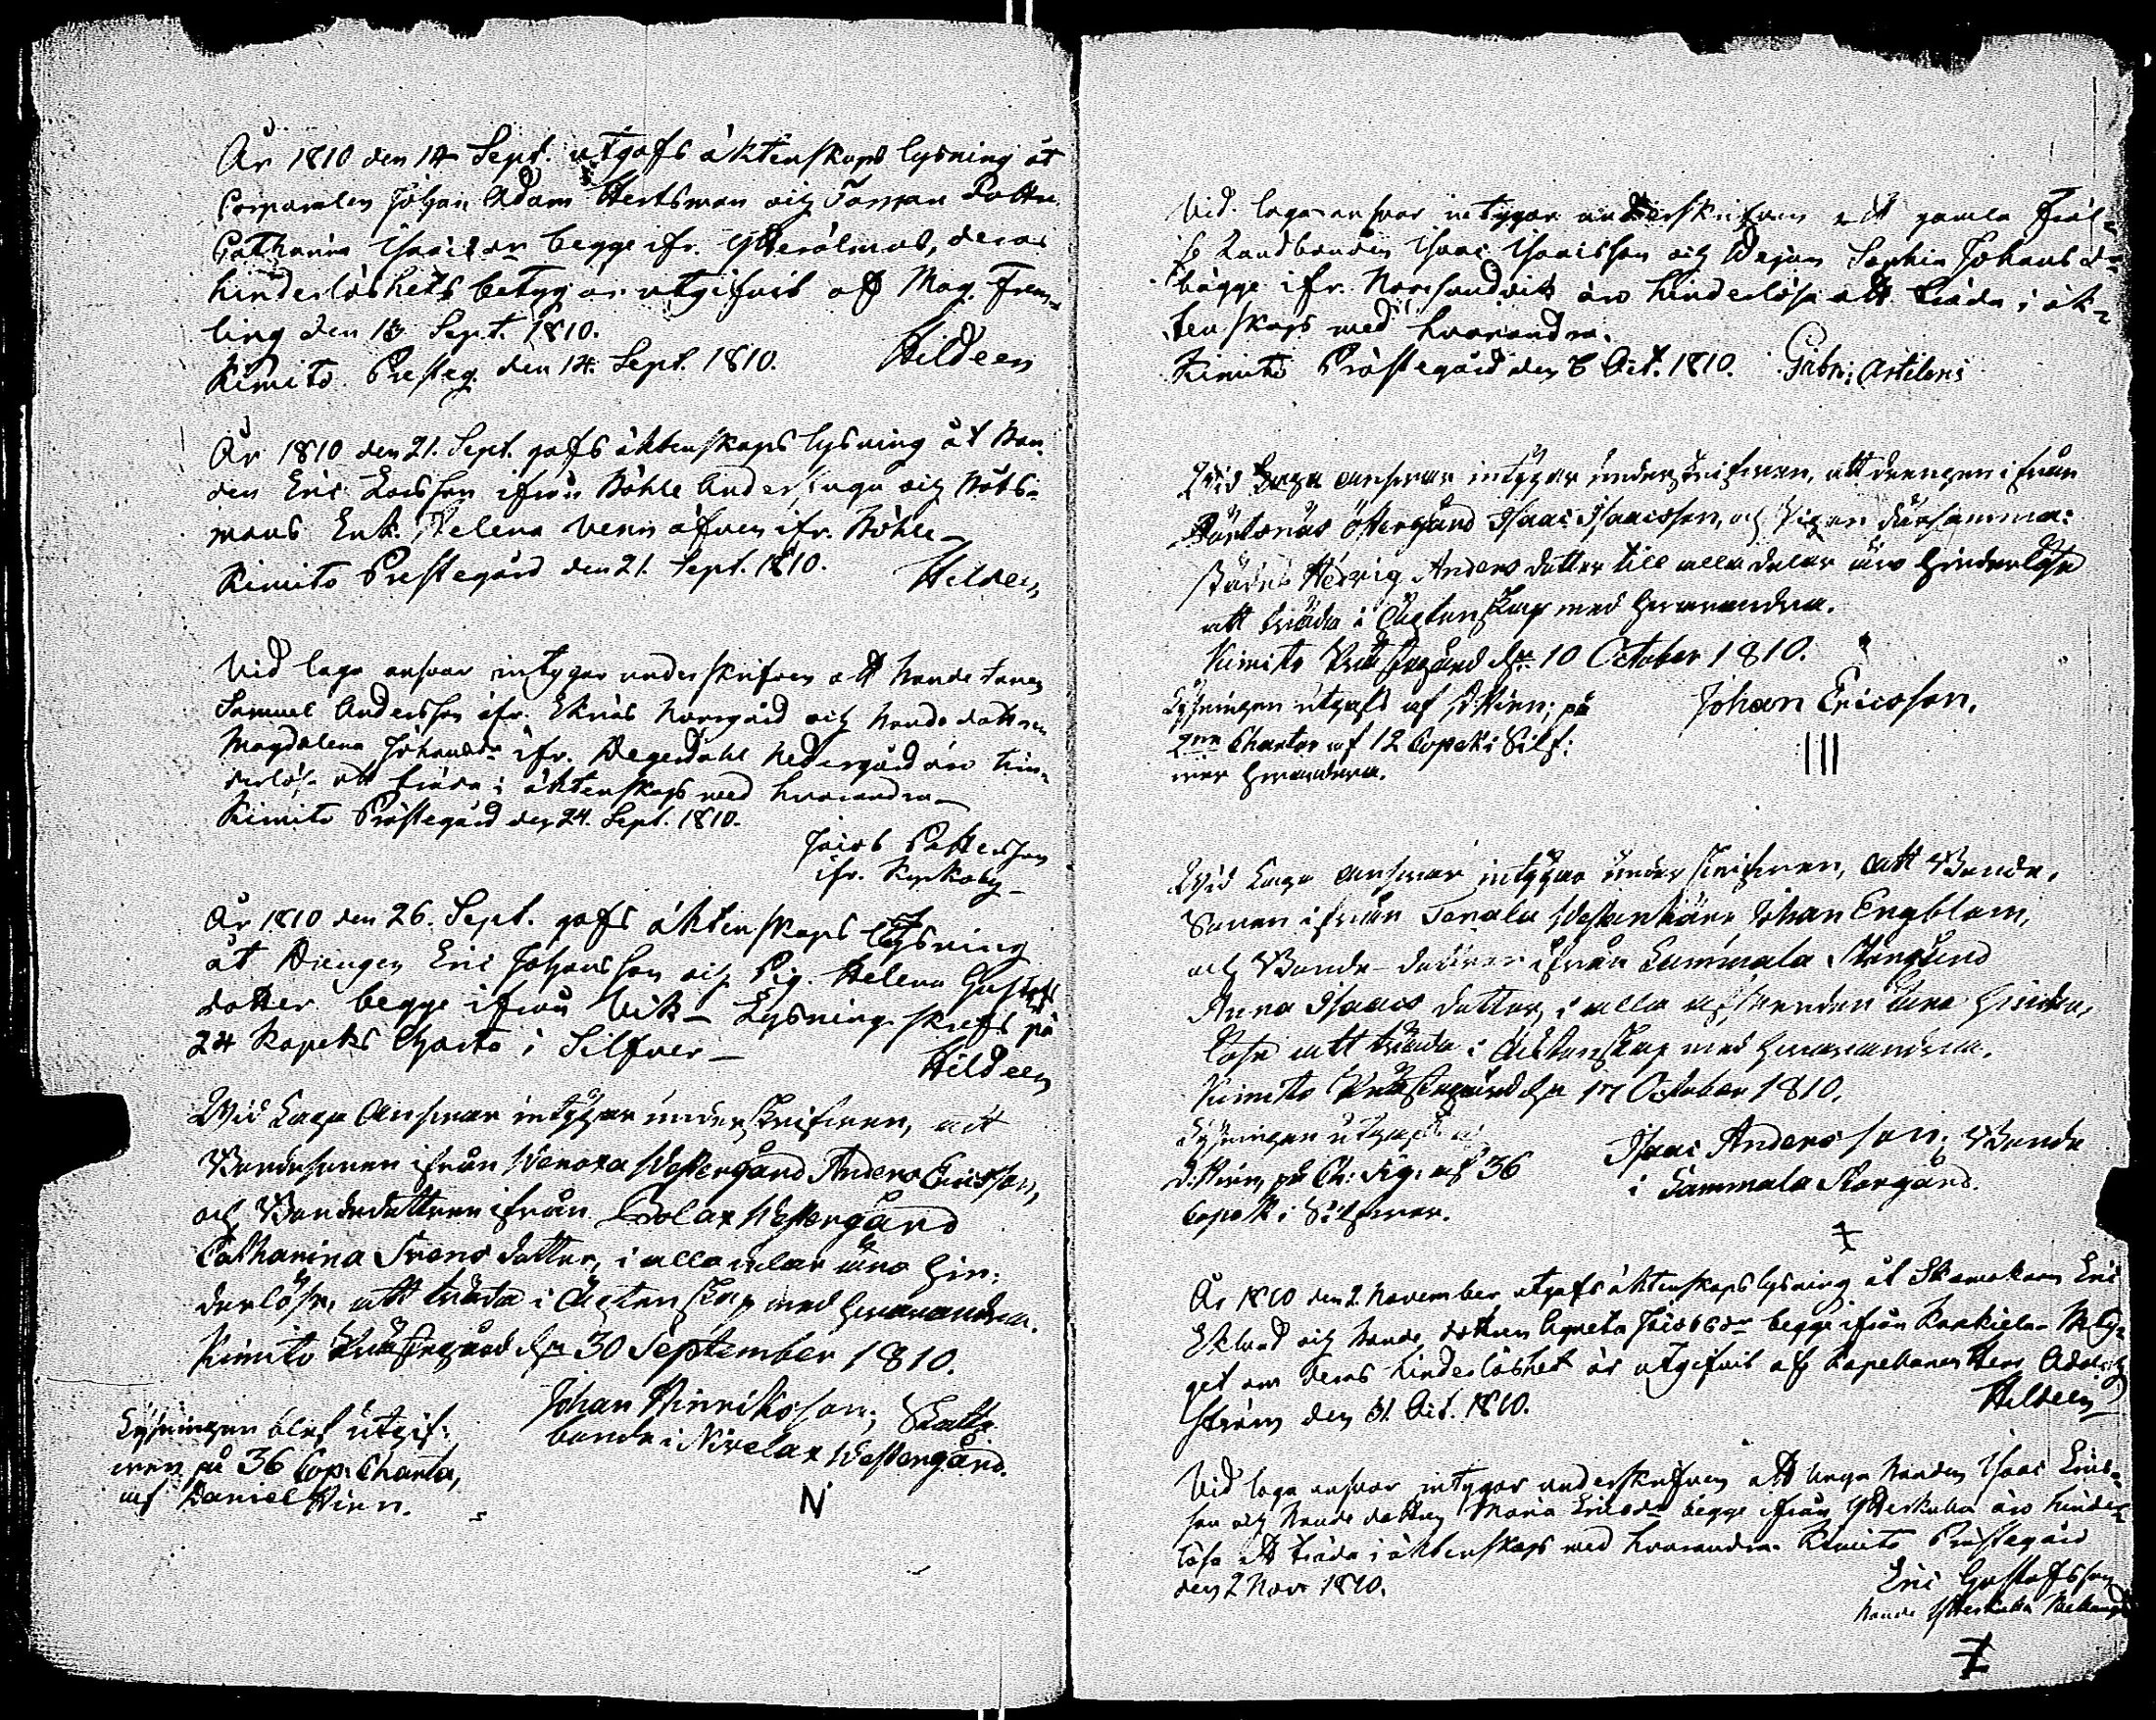 År 1810 den 14 Sept. utgafs äktenskaps lysning åt
Corporalen Johan Adam Hertsman och Jomfru Dottr.
Catharina Isacsdr begge ifr. Ytterölmos, deras
hinderlöshets betyg är utgifvit af Mag. Frem-
ling den 13 Sept. 1810.
Kimito Presteg. den 14 Sept. 1810. Hildeen
År 1810 den 21. Sept. gafs äktenskaps lysning åt Bon-
den Eric Ersson ifrån Böhle Anders och Båts-
mans Enk. Helena äfven ifr. Böhle –
Kimito Prestegård den 21. Sept. 1810. Hildeen
Vid laga ansvar intygar underskrifven att Bonde sonen
Samuel Andersson ifr. Eknäs Norrgård och Bonde dottren
Magdalena Johansdr ifr. Degerdahl Nedergård äro hin-
derlösa att träda i äktenskap med hvarandra –
Kimito Prästegård den 24. Sept. 1810.
Jacob Pettersson
ifr. Kyrkoby –
År 1810 den 26. Sept. gafs äktenskaps lysning
åt Drengen Eric Johansson och Pig. Helena Gustafs
dotter begge ifrån Vik – Lysning skrefs på
24 Kopeks Charta i Silfver –
Hildeen
Wid Laga Answar intygar underskrifwen, att
Bondesonen ifrån Wenoxa Westergård Anders Ericsson,
och Bondedottren ifrån Bolax Westergård
Catharina Svens dotter, i alla delar äro hin-
derlöse, att träda i Ächtenskap med hwarandra.
Kimito Prästegård den 30 September 1810.
Lysningen blef utgif-
wen på 36 Cop. Charta,
af Daniel Hinn.
Johan Hinriksson, Skatte
bonde i Nivelax Westergård.
N
Vid laga ansvar intygar underskrifven att gamla Fräl-
se Landbonden Isaac Isacsson och Pejan Sophia Johansdr
bägge ifr. Norrsundvik äro hinderlösa att träda i äk-
tenskap med hvarandra.
Kimito Prästegård den 6 Oct. 1810. Gabr: Artileni
Wid Laga answar intygar underskrifwen, att drengen ifrån
Pärtsnäs Östergård Isaac Isacsson, och Pigan därsamma-
städes Hedvig Anders dotter till alla delar äro hinderlöse
att träda i Ächtenskap med hwarandra.
Kimito Prästegård den 10 October 1810.
Lysningen utgafs af D: Hinn; på
2ne Chartor af 12 Copek i Silf:
wer hwardera.
Johan Ericsson.
III
Wid Laga answar intygar underskrifwen, att Bonde-
Sonen ifrån Tenala Westankärr Johan Engblom,
och Bonde-dottren ifrån Lammala Storgård
Anna Isaacs dotter, i alla afseenden äro hinder-
löse att träda i Ächtenskap med hwarandra.
Kimito Prästegård den 17 October 1810.
Lysningen utgafs af
D: Hinn, på Ch: Sig. af 36
Copek i Silfwer.
Isaac Andersson, Bonde
i Lammala Storgård.
År 1810 den 2. November utgafs äktenskaps lysning åt Skomakaren Eric
Eklund och Bonde dottren Agneta Jacobsdr begge ifrån Karkiela – Bety-
get om deras hinderlöshet är utgifvit af Kapellanen Herr Adolph
Ström den 31. Oct. 1810. Hildeen
Vid laga ansvar intygar underskrifven att unga Bonden Isaac Erics-
son och Bonde dottren Maria Ericsdr begge ifrån Ytterkulla äro hinder-
lösa att träda i äktenskap med hvarandra. Kimito Prästegård
den 2 Nov 1810.
Eric Gustafsson
Bonde Ytterkulla